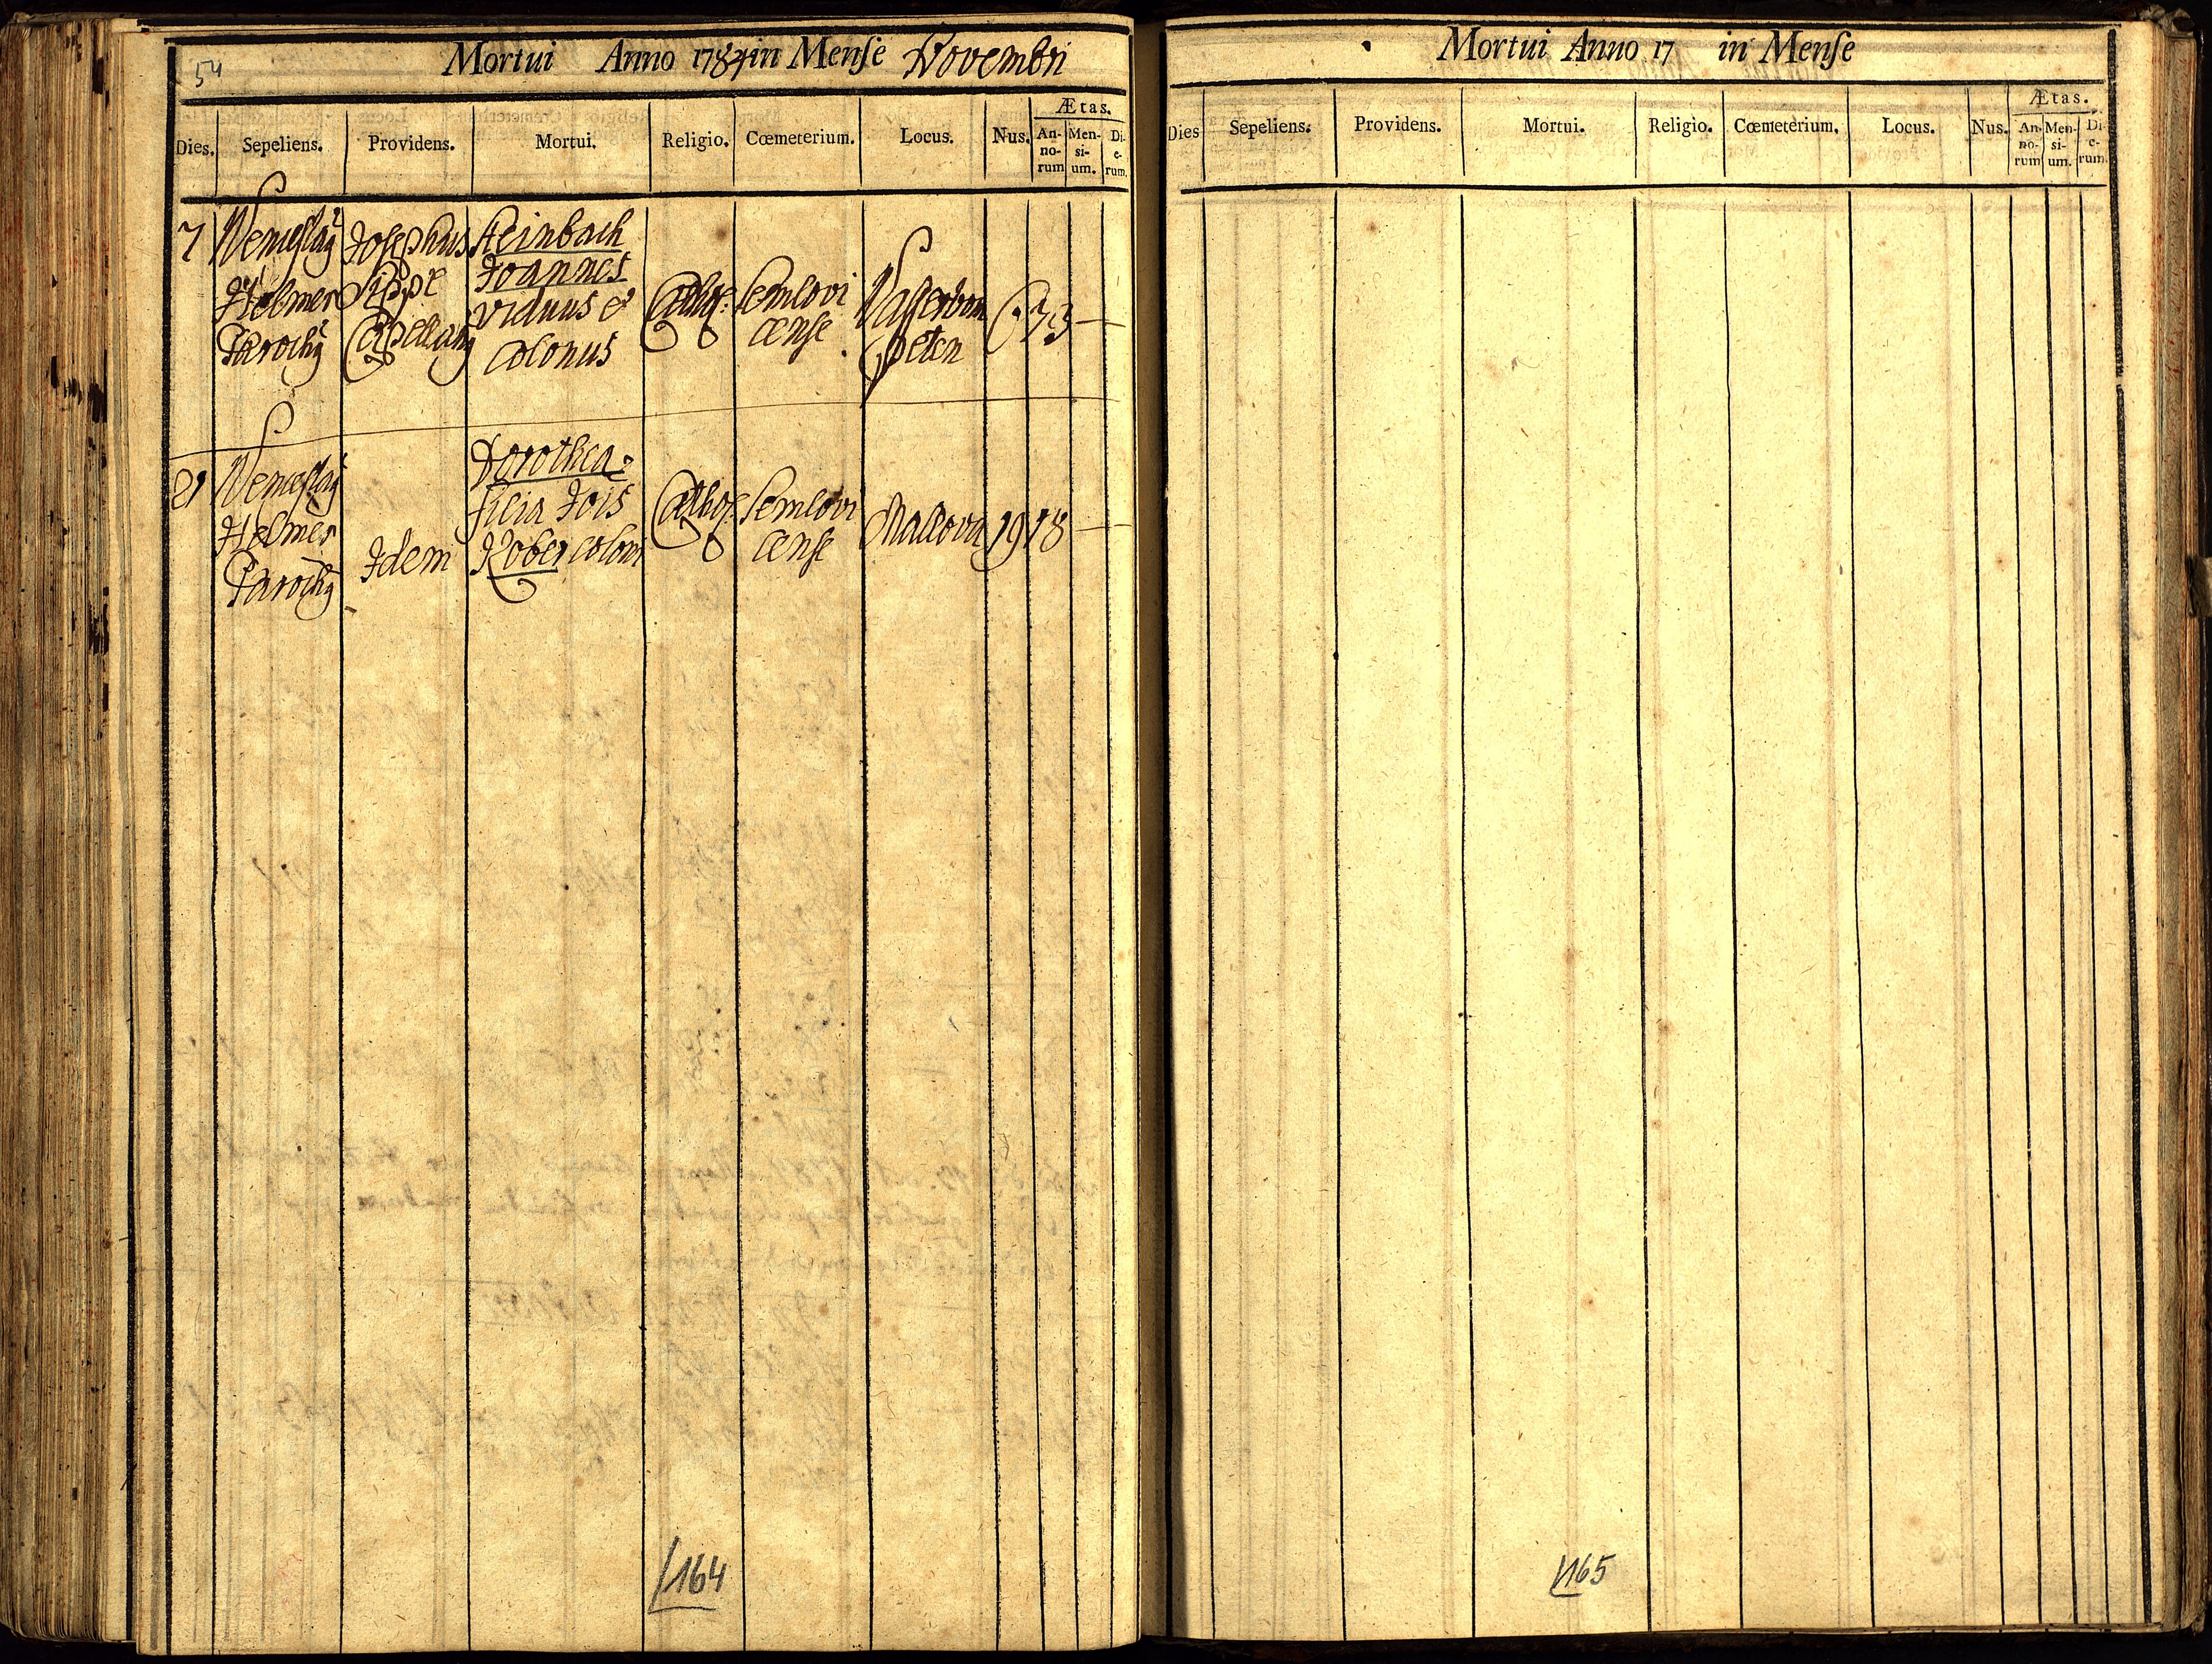 54
Mortui Anno 1784 in Mense Novembri
Ætas.
Dies. Sepeliens. Providens. Mortui. Religio. Cœmeterium. Locus. Nus. An-no-rum Men-si-um. Di-e-rum.
7
Wenceslaꝰ
Helmer
Parochꝰ
Josephus
Sippl
Capellanꝰ
Steinbach
Joannes
viduus et
colonus
Cathol:
Semlovi
cense
Wasserbom
73 —
21
Wenceslaꝰ
Helmer
Parochꝰ
Idem
Dorothea
filia Jois
Kober coloni
Cathol:
Semlovi
cense
Mallova
19
18 —
164
Mortui Anno 17 in Mense
Ætas.
Dies Sepeliens. Providens. Mortui. Religio. Cœmeterium. Locus. Nus. An-no-rum Men-si-um. Di-e-rum.
165